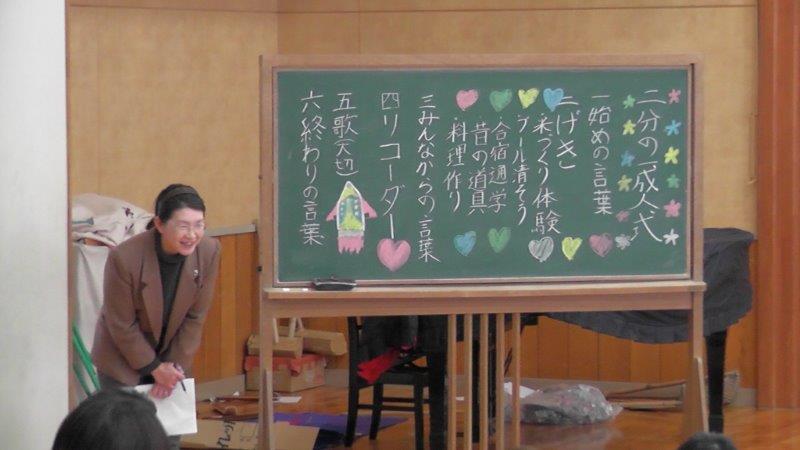 二分の一成人式
一始めの言葉
二げき
米づくり体験
プール清そう
・合宿通学
昔の道具
・料理作り
三みんなからの言葉
四リコーダー
五歌(大切)
六終わりの言葉